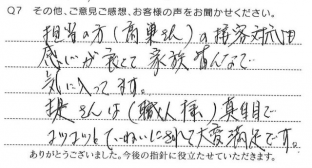 Q7 その他、ご意見ご感想、お客様の声をお聞かせください。
担当の方(高巣さん)の接客対応
感じが良くて家族皆んなで
気に入ってます。
さんは(職人様)真面目で
コツコツとていねいにされて大変満足です。
ありがとうございました。今後の指針に役立たせていただきます。